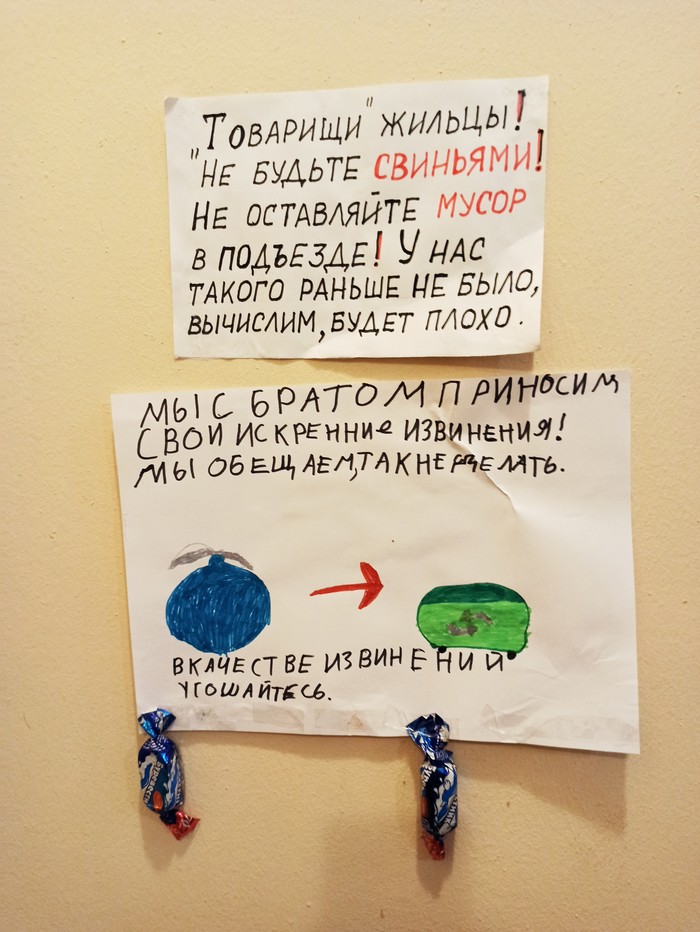 "Товарищи" жильцы!
"Не будьте свиньями!
Не оставляйте мусор
в подъезде! У нас
такого раньше не было,
вычислим, будет плохо.
МЫ С БРАТОМ ПРИНОСИМ
СВОИ ИСКРЕННИЕ ИЗВИНЕНИЯ!
МЫ ОБЕЩАЕМ, ТАК НЕ ДЕЛАТЬ.
В КАЧЕСТВЕ ИЗВИНЕНИЙ
УГОШАЙТЕСЬ.